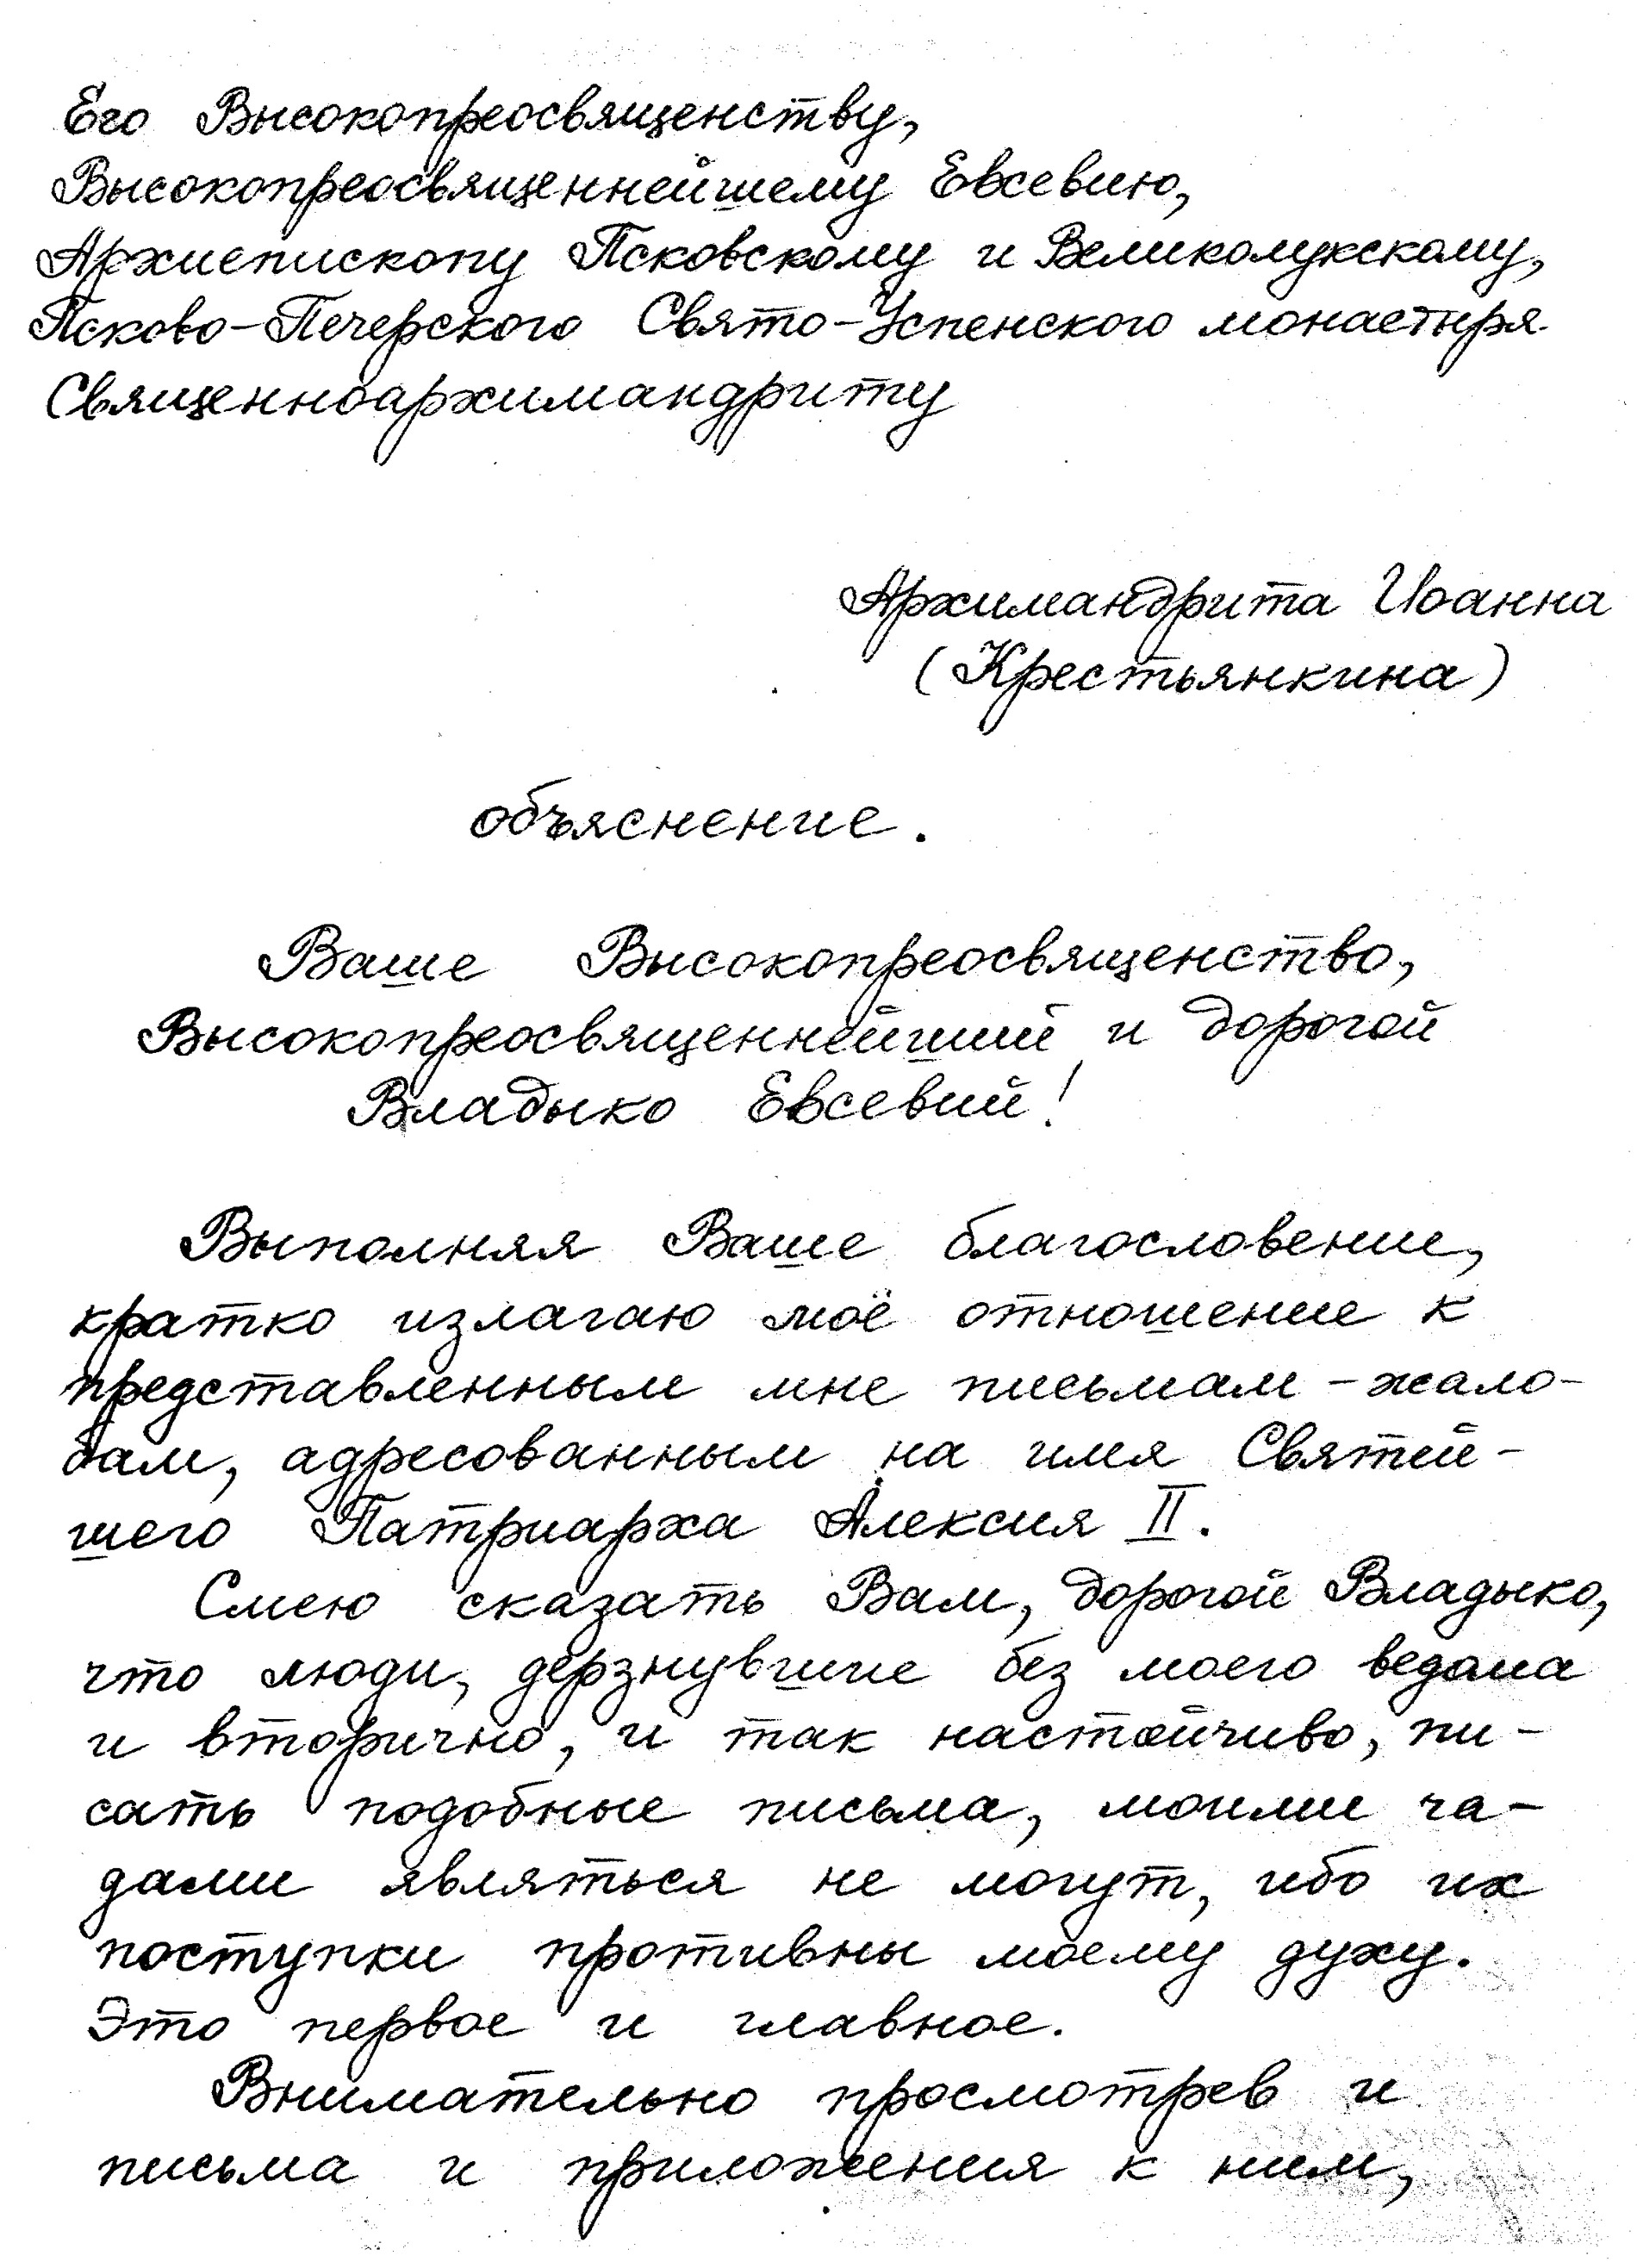 Его Высокопреосвященству,
Высокопреосвященнейшему Евсевию,
Архиепископу Псковскому и Великолукскому,
Псково-Печерского Свято-Успенского монастыря
Священноархимандриту
Архимандрита Иоанна
(Крестьянкина)
объяснение.
Ваше Высокопреосвященство,
Высокопреосвященнейший и дорогой
Владыко Евсевий!
Выполняя Ваше благословение,
кратко излагаю моё отношение к
представленным мне письмам-жало-
бам, адресованным на имя Святей-
шего Патриарха Алексия II.
Смею сказать Вам, дорогой Владыко,
что люди, дерзнувшие без моего ведома
и вторично, и так настойчиво, пи-
сать подобные письма, моими ча-
дами являться не могут, ибо их
поступки противны моему духу.
Это первое и главное.
Внимательно просмотрев и
письма и приложения к ним,